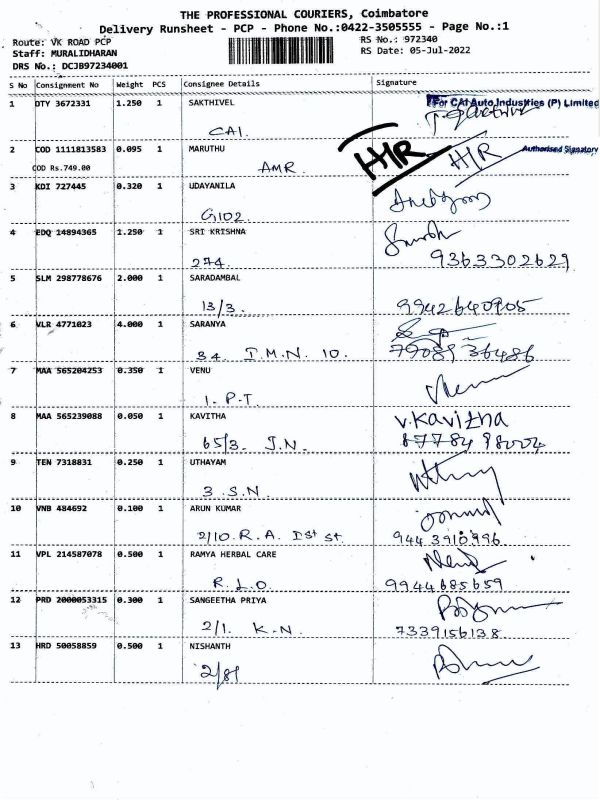 THE PROFESSIONAL COURIERS, Coimbatore
Delivery Runsheet - PCP - Phone No.:0422-3505555 - Page No.:1
Route: VK ROAD PCP RS No.: 972340
Staff: MURALIDHARAN RS Date: 05-Jul-2022
DRS No.: DCJB97234001
S No Consignment No Weight PCS Consignee Details Signature
1 DTY 3672331 1.250 1 SAKTHIVEL For CAI Auto Industries (P) Limited
CAI.
2 COD 1111813583 0.095 1 MARUTHU H/R H/R Authorised Signatory
COD Rs.749.00 AMR.
3 KDI 727445 0.320 1 UDAYANILA
G102.
4 EDQ 14894365 1.250 1 SRI KRISHNA
274. 9363302629
5 SLM 298778676 2.000 1 SARADAMBAL
13/3. 9942640905
6 VLR 4771023 4.000 1 SARANYA
34. I.M.N. 10. 79089 36486
7 MAA 565204253 0.350 1 VENU
1. P.T.
8 MAA 565239088 0.050 1 KAVITHA v.Kavitha
65/3. J.N. 87784 98004
9 TEN 7318831 0.250 1 UTHAYAM
3.S.N.
10 VNB 484692 0.100 1 ARUN KUMAR
2/10.R.A. Ist st. 944 3910996
11 VPL 214587078 0.500 1 RAMYA HERBAL CARE
R.L.O. 9944685659
12 PRD 2000053315 0.300 1 SANGEETHA PRIYA
2/1. K.N. 7339156138.
13 HRD 50058859 0.500 1 NISHANTH
2/81